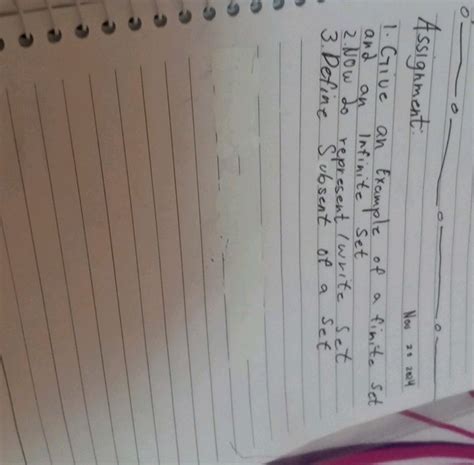 Assignment:
Nov 20 2024
1. Give an Example of a finite set
and an Infinite set
2. NOW do represent / write set
3. Define Subsent of a set